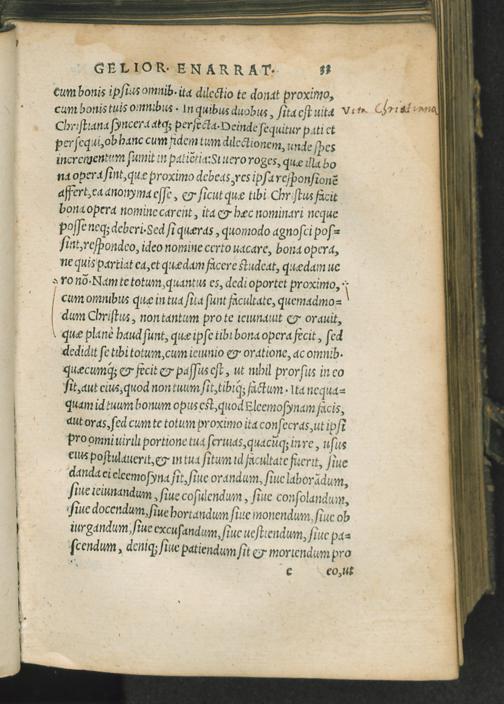 GELIOR· ENARRAT· 33
cum bonis ipsius omnib· ita dilectio te donat proximo,
cum bonis tuis omnibus · In quibus duobus, sita est vita
Vita Christiana
Christiana syncera atq; perfecta·Deinde sequitur pati et
persequi, ob hanc cum fidem tum dilectionem, unde spes
incrementum sumit in patiẽtia:Si uero roges, quæ illa bo
na opera sint, quæ proximo debeas, res ipsa responsionẽ
affert, ea anonyma esse, & sicut quæ tibi Christus facit
bona opera nomine carent, ita & hæc nominari neque
posse neq; deberi·Sed si quæras, quomodo agnosci pos=
sint, respondeo, ideo nomine certo uacare, bona opera,
ne quis partiat ea, et quædam facere studeat, quædam ue
ro nõ·Nam te totum, quantus es, dedi oportet proximo,
cum omnibus quæ in tua sita sunt facultate, quemadmo=
dum Christus, non tantum pro te ieiunauit & orauit,
quæ planè haud sunt, quæ ipse tibi bona opera fecit, sed
dedidit se tibi totum, cum ieiunio & oratione, ac omnib·
quæcumq; & fecit & passus est, ut nihil prorsus in eo
sit, aut eius, quod non tuum sit, tibiq; factum · Ita nequa=
quam id tuum bonum opus est, quod Eleemosynam facis,
aut oras, sed cum te totum proximo ita consecras, ut ipsi
pro omni uirili portione tua seruias, quacũq; in re, usus
eius postulauerit, & in tua situm id facultate fuerit, siue
danda ei eleemosyna sit, siue orandum, siue laborãdum,
siue ieiunandum, siue cõsulendum, siue consolandum,
siue docendum, siue hortandum siue monendum, siue ob
iurgandum, siue excusandum, siue uestiendum, siue pa=
scendum, deniq; siue patiendum sit & moriendum pro
c eo, ut